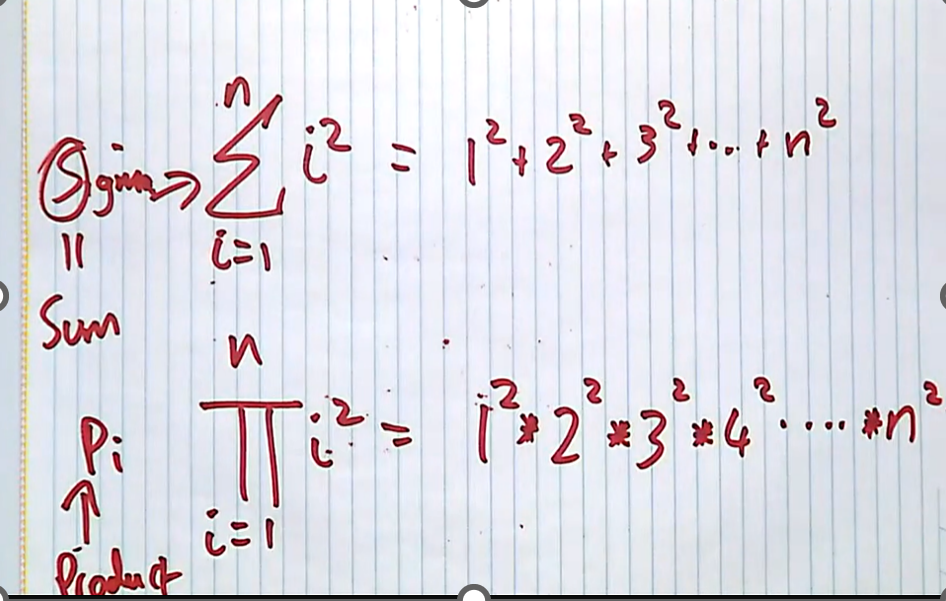 Sigma → n ∑ i=1 i² = 1² + 2² + 3² + ... + n²
||
Sum
Pi n ∏ i=1 i² = 1² * 2² * 3² * 4² ..... * n²
↑
Product